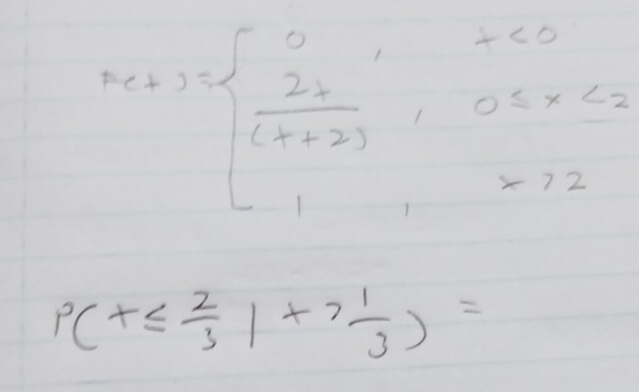 F(x) = { 0 , x < 0
2x / (x+2) , 0 ≤ x < 2
1 , x > 2
P(x ≤ 2/3 | x > 1/3) =